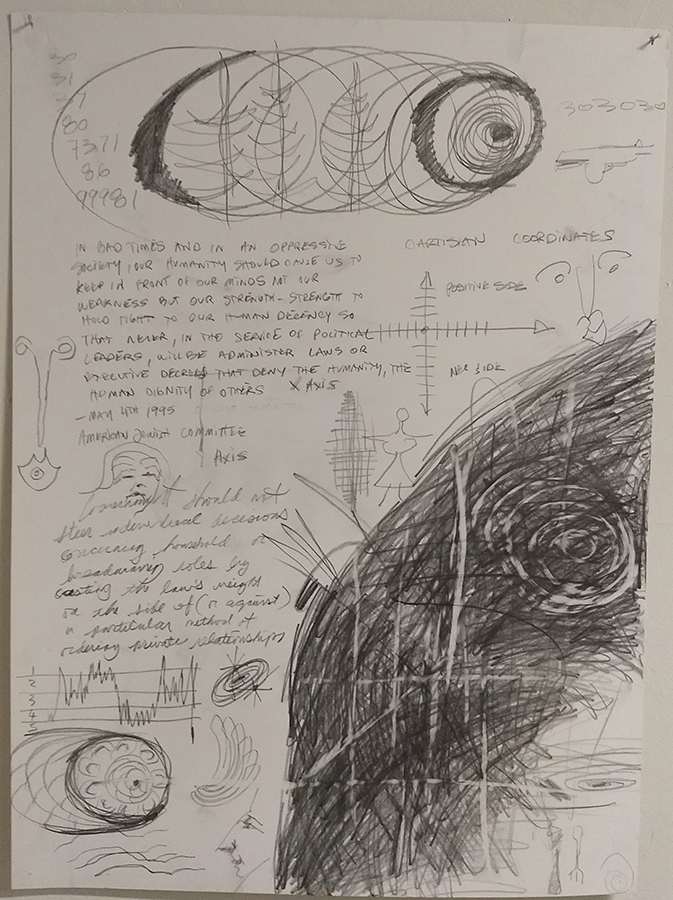 30
31
80
7371
86
99981
303030
IN BAD TIMES AND IN AN OPPRESSIVE
SOCIETY, OUR HUMANITY SHOULD CAUSE US TO
KEEP IN FRONT OF OUR MINDS NOT OUR
WEAKNESS BUT OUR STRENGTH - STRENGTH TO
HOLD TIGHT TO OUR HUMAN DECENCY SO
THAT NEVER, IN THE SERVICE OF POLITICAL
LEADERS, WILL WE ADMINISTER LAWS OR
EXECUTIVE DECREES THAT DENY THE HUMANITY, THE
HUMAN DIGNITY OF OTHERS
- MAY 4TH 1995
AMERICAN JEWISH COMMITTEE
CARTISIAN COORDINATES
POSITIVE SIDE
NEG SIDE
X AXIS
AXIS
should not
steer individual decisions
concerning household or
breadwinning roles by
casting the law's weight
on the side of (or against)
a particular method of
ordering private relationships
1
2
3
4
5